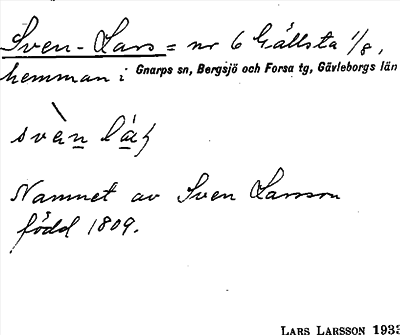 Sven-Lars = nr 6 Gällsta 1/8,
hemman i Gnarps sn, Bergsjö och Forsa tg, Gävleborgs län
Namnet av Sven Larsson
född 1809.
LARS LARSSON 1933